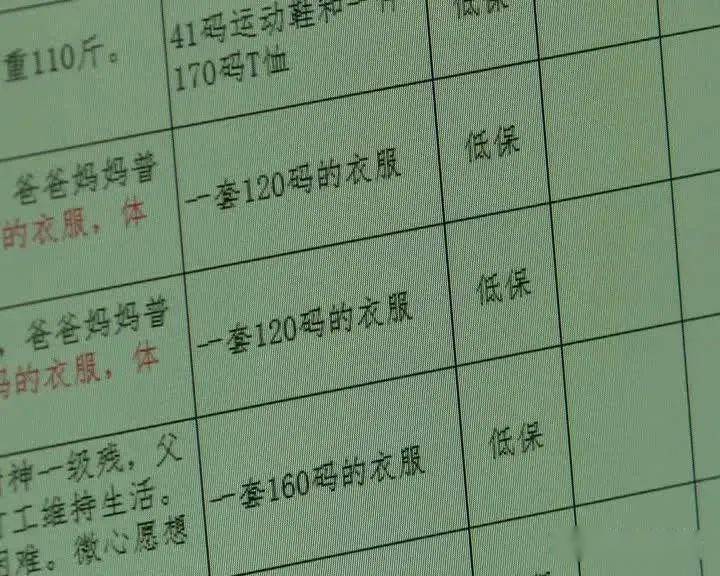 重110斤。
41码运动鞋和一件
170码T恤
低保
爸爸妈妈普
的衣服，体
一套120码的衣服
低保
，爸爸妈妈普
码的衣服，体
一套120码的衣服
低保
神一级残，父
打工维持生活。
困难。微心愿想
一套160码的衣服
低保
低保